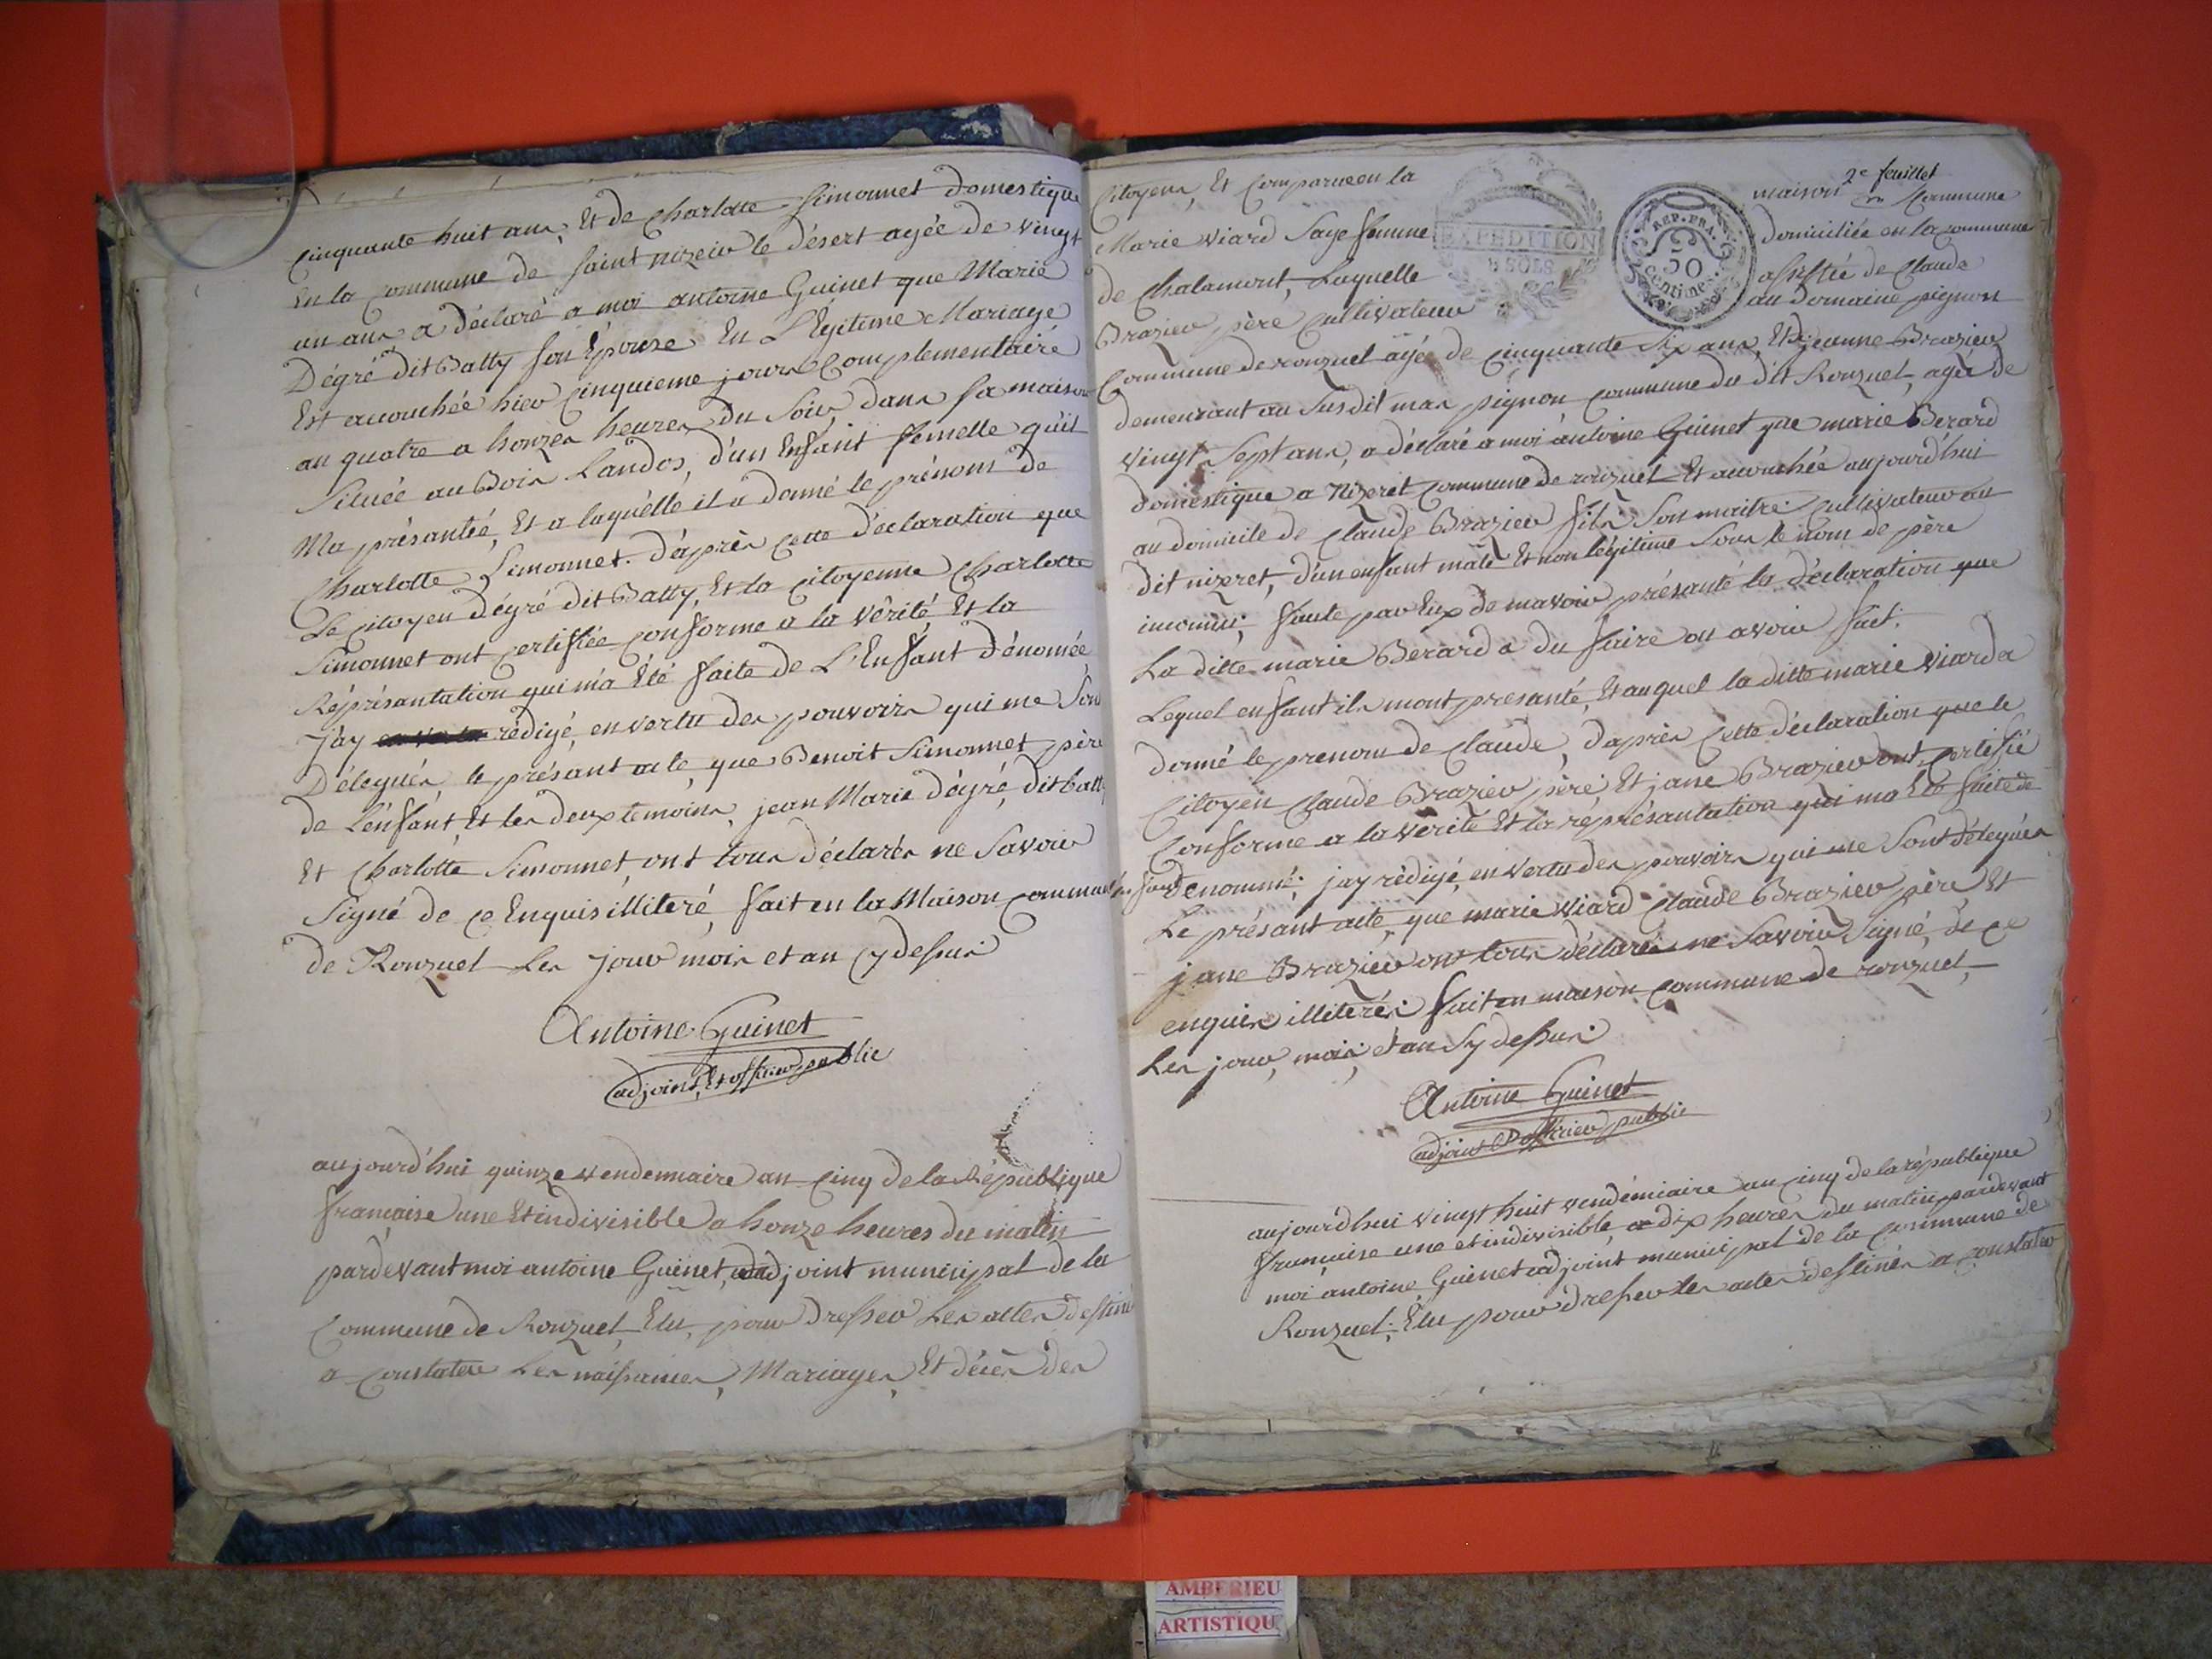 cinquante huit ans, Et de Charlotte Simonnet domestique
En la commune de saint nizier le désert agée de vingt
un ans a déclaré a moi antoine Guinet que Marie
Dégré dit Batty son Épouse En Légitime Mariage
Est accouchée hier cinquieme jours complementaire
an quatre a honzes heures du Soir, dans sa maison
Située au Bois Landos, d'un Enfant femelle qu'il
Ma présantée, Et a laquelle il a donné le prénom de
Charlotte Simonnet. d'après cette déclaration que
Le citoyen dégré dit Batty, Et la citoyenne Charlotte
Simonnet ont certifiée conforme a la Vérité, Et la
Réprésantation qui m'a Été faite de L'Enfant dénomée
j'ay rédigé, en vertu des pouvoirs qui me Son
Délegués, le présant acte, que Benoit Simonnet père
de L'enfant, Et les deux temoins, jean Marie dégré, dit batty
Et Charlotte Simonnet, ont tous déclarés ne Savoir
Signé de ce Enquis illiteré, fait en la Maison commune
de Ronzuel Les jour mois et an cy dessus
Antoine Guinet
adjoint, Et officier public
aujourd'hui quinze vendemiaire an Cinq de la République
française une Et indivisible a honze heures du matin
pardevant moi antoine Guinet, adjoint municipal de la
Commune de Ronzuel, Elu, pour dresser Les actes destiné
a constater Les naissances, Mariages, Et décès des
2e feuillet
Citoyens, Et Comparue en la maison Commune
EXPEDITION
SOLS
REP. FRA.
50
Centimes
Marie Viard Sage femme domiciliée en la commune
de Chalamont, Laquelle assistée de Claude
Brazier père cultivateur au domaine pignon
Commune de ronzuel agée de cinquante Six ans, Et jeanne Brazier
demeurant au Susdit mas pignon commune du dit Ronzuel, agée de
vingt Sept ans, a déclaré a moi antoine Guinet que marie Berard
domestique a Nizeret commune de ronzuel Et accouchée aujourd'hui
au domicile de Claude Brazier fils Son maitre cultivateur au
dit nizeret, d'un enfant mâle Et non légitime Sous le nom de père
inconnu, faute par Eux de mavoir présanté la déclaration que
La ditte marie Berard a du faire ou avoir fait.
Lequel enfant ils mont presanté, Et auquel la ditte marie Viard a
donné le prenom de Claude, d'après cette déclaration que le
Citoyen Claude Brazier père, Et jane Brazier ont certifié
Conforme a la verité Et la réprésantation qui ma Été faite de
l'enfant dénommé; jay rédigé, en vertu des pouvoirs qui me Sont délegués
Le présant acte, que marie Viard Claude Brazier père, Et
jane Brazier ont tous déclarés ne Savoir Signé, de ce
enquis illiterés fait en maison commune de ronzuel,
Les jour, mois, et an Sy dessus
Antoine Guinet
adjoint Et officier public
aujourdhui vingt huit vendémiaire an cinq de la république
française une et indivisible, a dix heures du matin pardevant
moi antoine Guinet adjoint municipal de la commune de
Ronzuel; Elu pour dresser les actes destinés a constater
AMBERIEU
ARTISTIQU